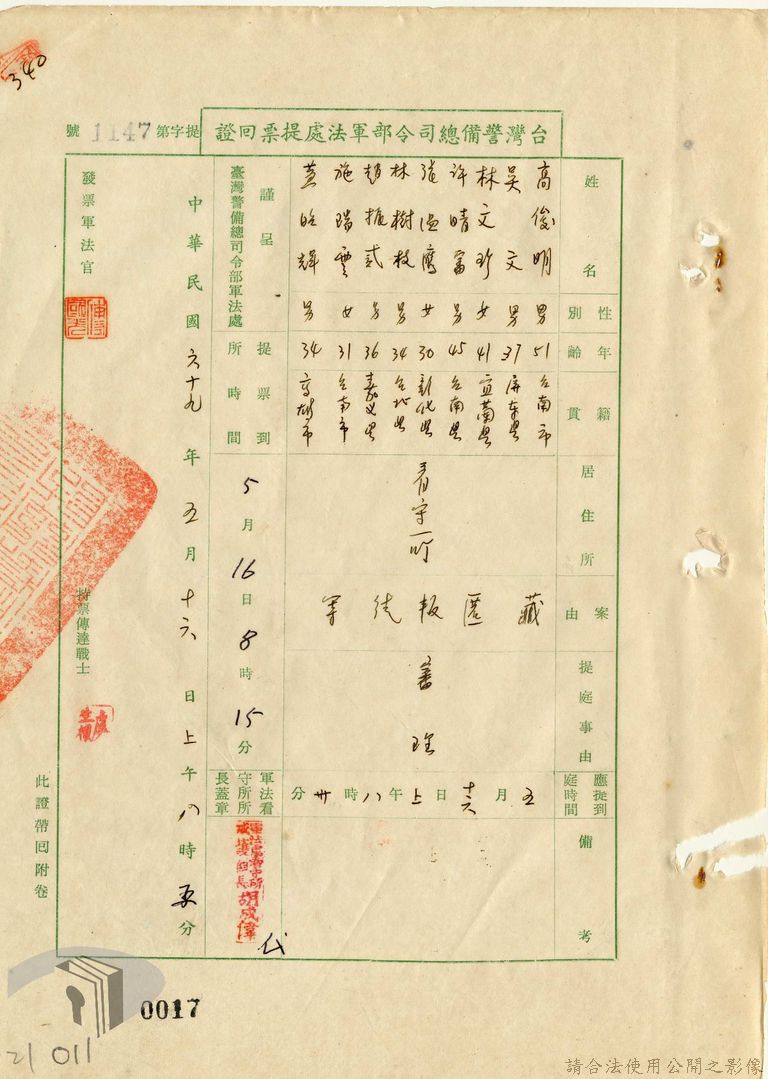 340
台灣警備總司令部軍法處提票回證
提字第1147號
姓名
高俊明
吳文
林文珍
許晴富
張溫鷹
林樹枝
趙振貳
施瑞雲
黃昭輝
性別
男
男
女
男
女
男
男
女
男
年齡
51
37
41
45
30
34
36
31
34
籍貫
台南市
屏東縣
宜蘭縣
台南縣
新化縣
台北縣
嘉義縣
台南市
高雄市
居住所
看守所
案由
藏匿叛徒等
提庭事由
審理
應提到庭時間
五月十六日上午八時卅分
備考
謹呈
臺灣警備總司令部軍法處
提票到所時間
5月16日8時15分
軍法看守所所長蓋章
軍法處看守所
戒護組長胡成偉
代
中華民國六十九年五月十六日上午八時五分
發票軍法官
持票傳達戰士
此證帶回附卷
0017
21 011
請合法使用公開之影像